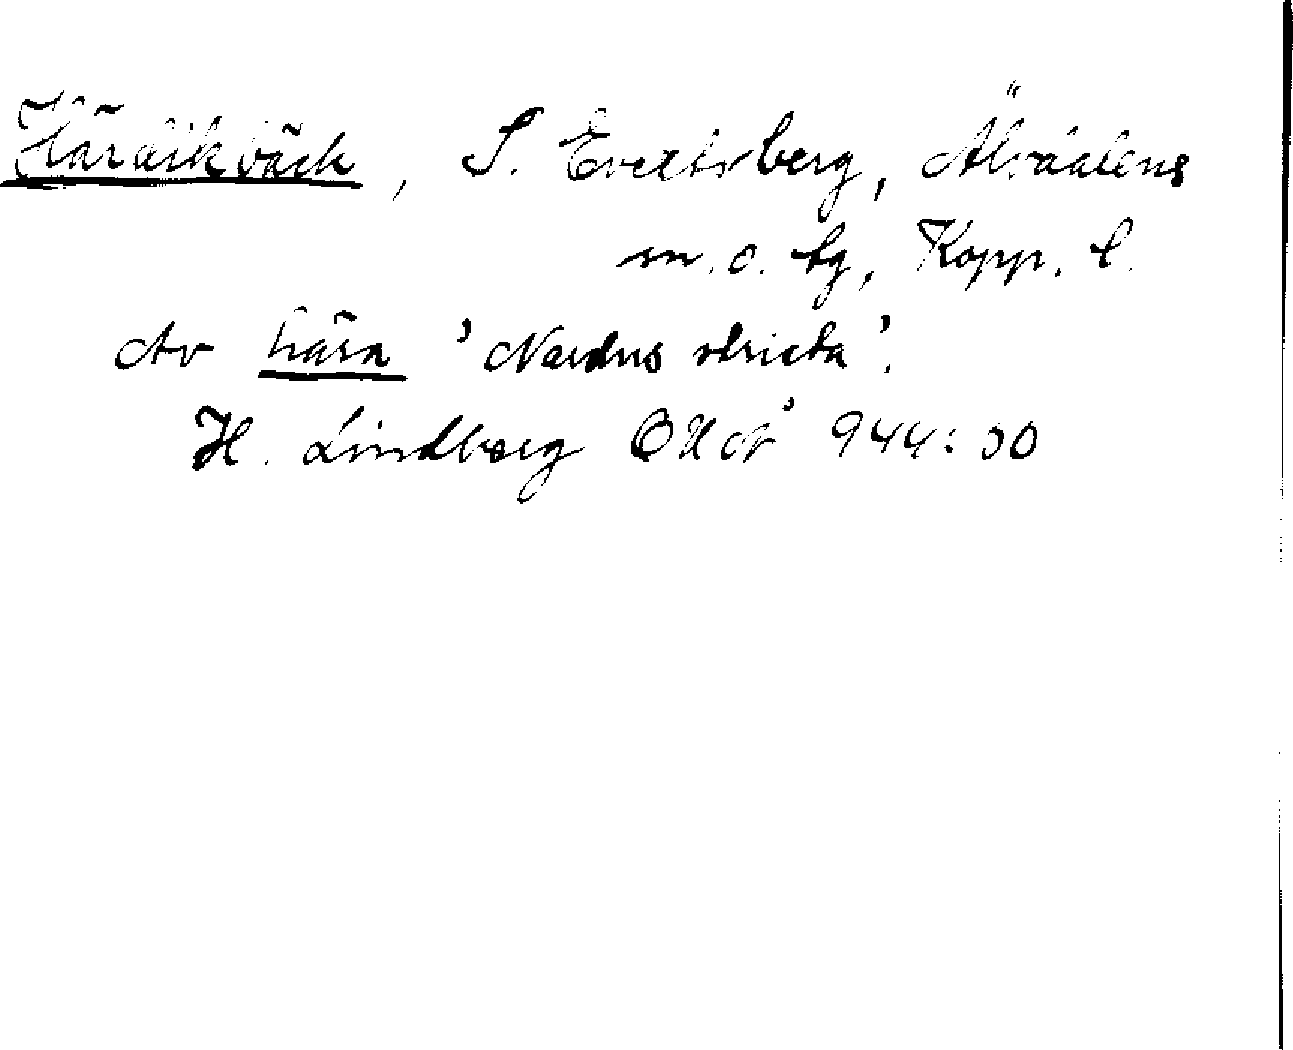 Härdikbäck, S. Evertsberg, Älvdalens
m. o. tg, Kopp. l.
Av hära 'Nardus stricta'.
H. Lindberg 944:30